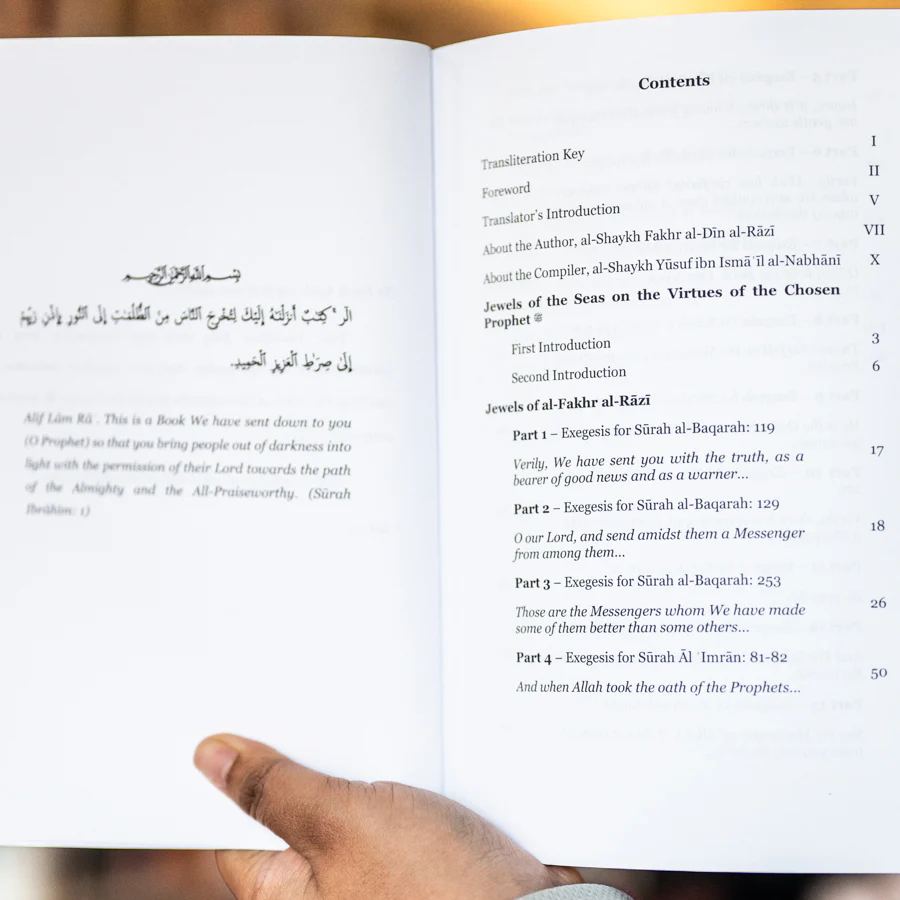 بِسْمِ اللَّهِ الرَّحْمَٰنِ الرَّحِيمِ
الٓر ۚ كِتَٰبٌ أَنزَلْنَٰهُ إِلَيْكَ لِتُخْرِجَ ٱلنَّاسَ مِنَ ٱلظُّلُمَٰتِ إِلَى ٱلنُّورِ بِإِذْنِ رَبِّهِمْ
إِلَىٰ صِرَٰطِ ٱلْعَزِيزِ ٱلْحَمِيدِ.
Alif Lām Rā . This is a Book We have sent down to you
(O Prophet) so that you bring people out of darkness into
light with the permission of their Lord towards the path
of the Almighty and the All-Praiseworthy. (Sūrah
Ibrāhīm: 1)
Contents
Transliteration Key I
Foreword II
Translator's Introduction V
About the Author, al-Shaykh Fakhr al-Dīn al-Rāzī VII
About the Compiler, al-Shaykh Yūsuf ibn Ismāʿīl al-Nabhānī X
Jewels of the Seas on the Virtues of the Chosen
Prophet ﷺ
First Introduction 3
Second Introduction 6
Jewels of al-Fakhr al-Rāzī
Part 1 – Exegesis for Sūrah al-Baqarah: 119
Verily, We have sent you with the truth, as a 17
bearer of good news and as a warner...
Part 2 – Exegesis for Sūrah al-Baqarah: 129
O our Lord, and send amidst them a Messenger 18
from among them...
Part 3 – Exegesis for Sūrah al-Baqarah: 253
Those are the Messengers whom We have made 26
some of them better than some others...
Part 4 – Exegesis for Sūrah Āl ʿImrān: 81-82
And when Allah took the oath of the Prophets... 50